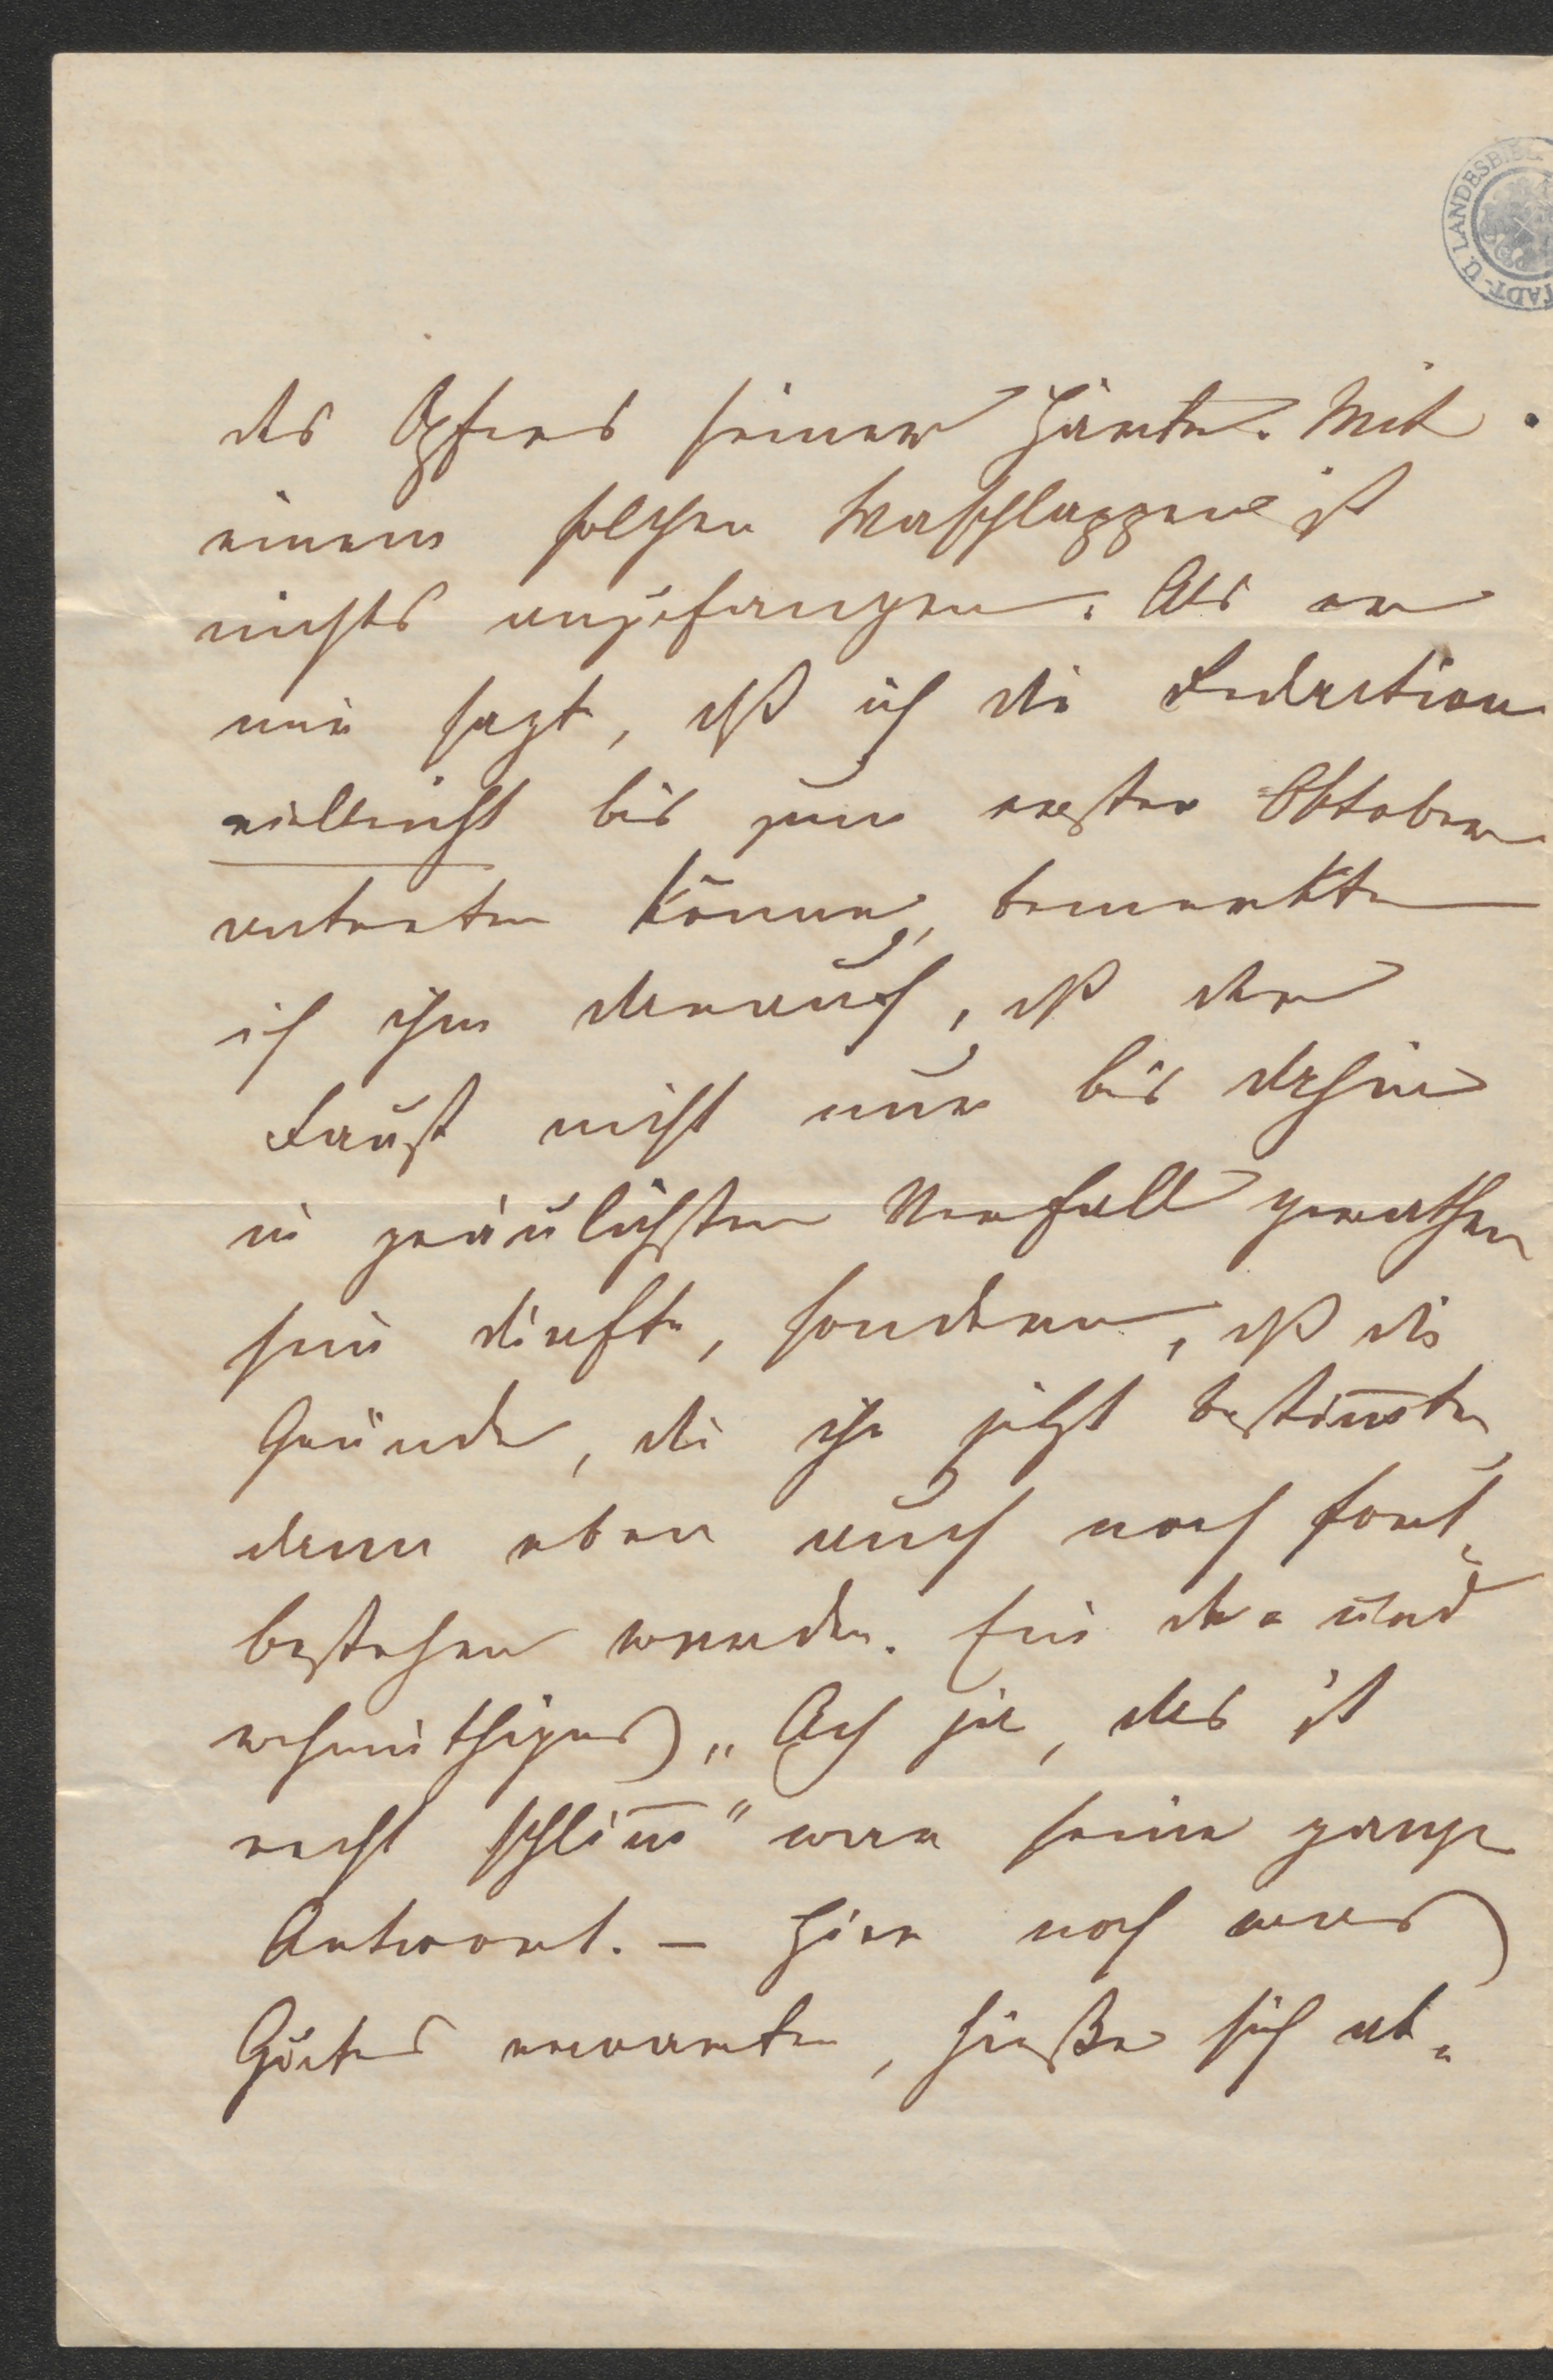 STADT- U. LANDESBIBL.
des Opfers seiner Härte. Mit
einem solchen Waschlappen ist
nichts anzufangen. Als er
mir sagt, daß ich die Redaction
vielleicht bis zum ersten Oktober
antreten könne, bemerkte
ich ihm darauf, daß der
Faust nicht nur bis dahin
in gräulichsten Verfall gerathen
sein dürfte, sondern, daß die
Gründe, die ihn jetzt bestim̅ten,
dann eben auch noch fort-
bestehen werden. Ein
wehmüthiges „Ach ja, das ist
recht schlim̅" war seine ganze
Antwort. – Hier noch was
Gutes erwarten, hieße sich ab-